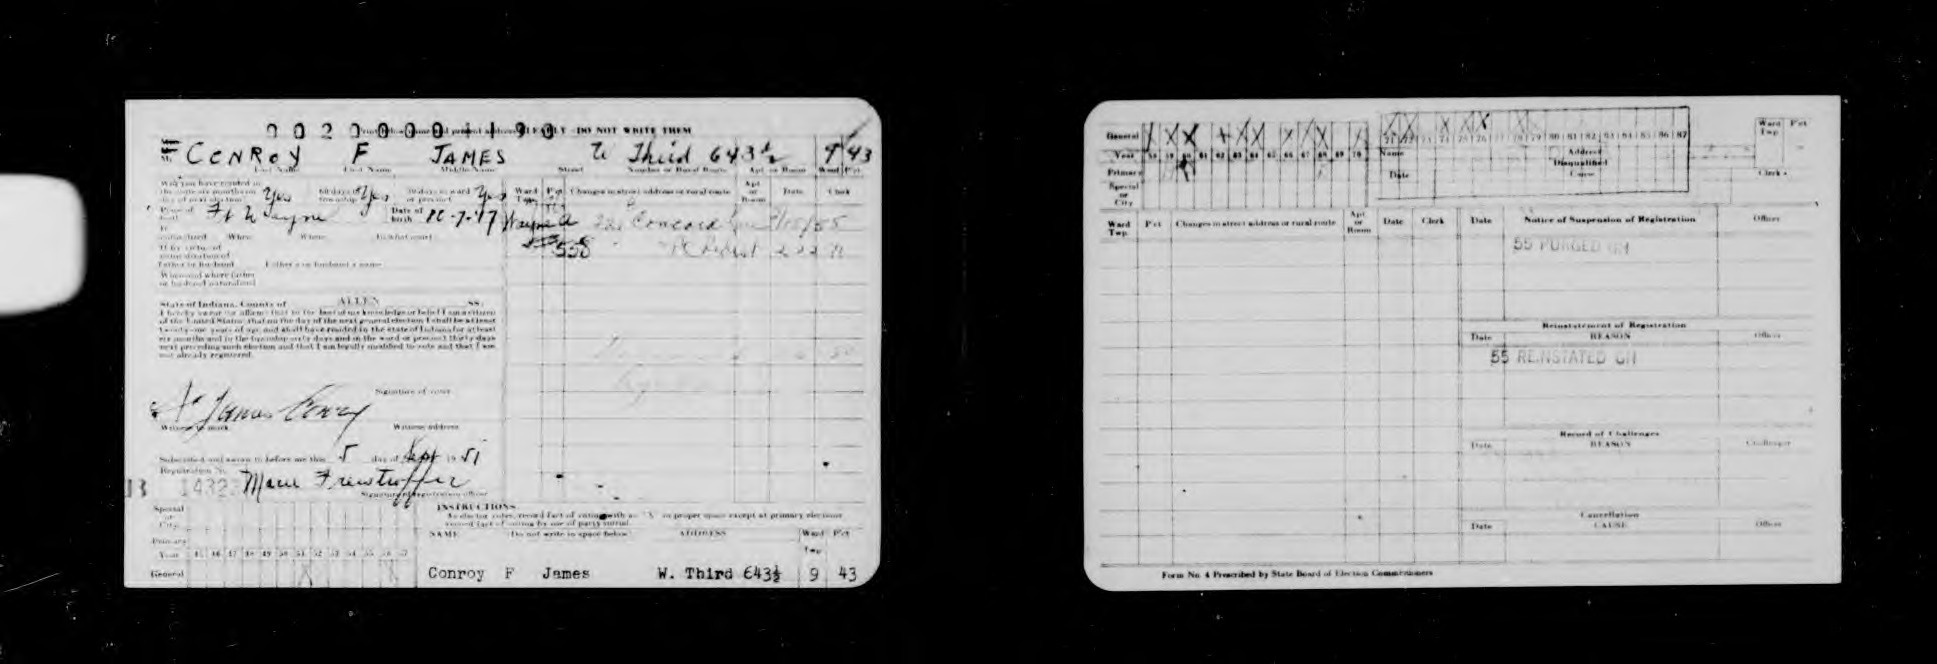 0020000 1190
DO NOT WRITE THEM
CONROY F JAMES W Third 643½ 9 43
Last Name First Name Middle Name Street Number or Rural Route Apt or Room Ward P'ct
Will you have resided in
the state six months on
day of next election Yes 60 days in township Yes 30 days in ward or precinct Yes
Ward Twp. P'ct Changes in street address or rural route Apt or Room Date Clerk
Place of birth Ft Wayne Date of birth
Wayne A Concord
558
If by virtue of
naturalization of
father or husband Father's or husband's name
When and where father
or husband naturalized
State of Indiana, County of ALLEN SS:
I hereby swear (or affirm) that to the best of my knowledge or belief I am a citizen
of the United States; that on the day of the next general election I shall be at least
twenty-one years of age and shall have resided in the state of Indiana for at least
six months and in the township sixty days and in the ward or precinct thirty days
next preceding such election and that I am legally qualified to vote and that I am
not already registered.
Signature of voter
F. James Conroy
Witness to mark Witness address
Subscribed and sworn to before me this 5 day of Sept 1951
Registration No.
Marie
Signature of registration officer
Special or City
Primary
Year 45 46 47 48 49 50 51 52 53 54 55 56 57
General X X
INSTRUCTIONS
As elector votes, record fact of voting with an "X" in proper space except at primary elections
record fact of voting by use of party initial.
NAME (Do not write in space below) ADDRESS Ward Twp. P'ct
Conroy F James W. Third 643½ 9 43
General
Year 58 59 60 61 62 63 64 65 66 67 68 69 70
Primary
Special or City
71 72 73 74 75 76 77 78 79 80 81 82 83 84 85 86 87
Name Address
Disqualified
Date Cause
Ward Twp. P'ct
Clerk
Ward Twp. P'ct Changes in street address or rural route Apt. or Room Date Clerk Date Notice of Suspension of Registration Officer
55 PURGED GH
Reinstatement of Registration
Date REASON Officer
55 REINSTATED GH
Record of Challenges
Date REASON Challenger
Cancellation
Date CAUSE Officer
Form No. 4 Prescribed by State Board of Election Commissioners